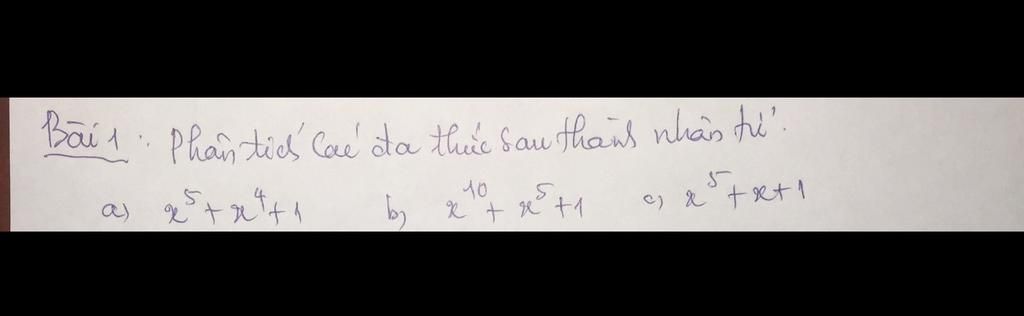 Bài 1: Phân tích các đa thức sau thành nhân tử.
a) x⁵ + x⁴ + 1 b) x¹⁰ + x⁵ + 1 c) x⁵ + x + 1